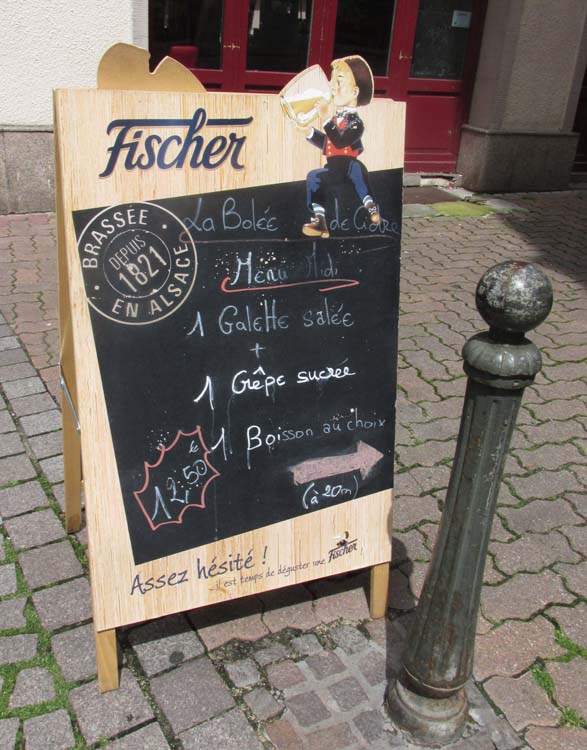 Fischer
BRASSÉE
DEPUIS
1821
EN ALSACE
La Bolée de Cidre
Menu Midi
1 Galette salée
+
1 Crêpe sucrée
1 Boisson au choix
12,50 €
(à 20m)
Assez hésité !
...il est temps de déguster une Fischer